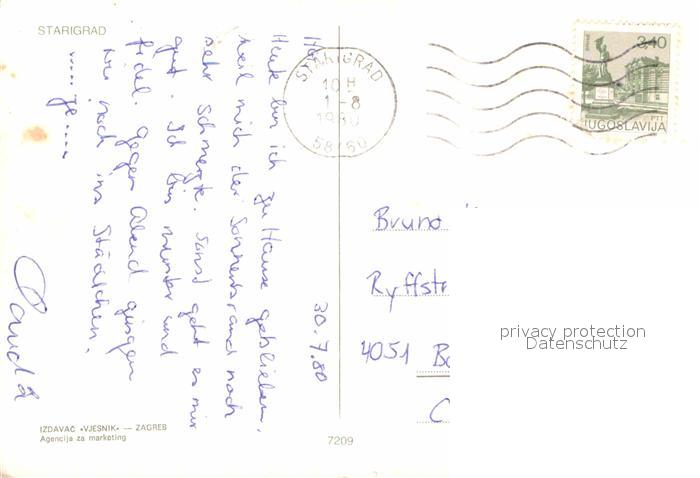 STARIGRAD
30.7.80
Heute bin ich zu Hause geblieben,
weil mich der Sonnenbrand noch
sehr schmerzte. Sonst geht es mir
gut. Ich bin munter und
fidel. Gegen Abend gingen
wir noch ins Städtchen.
IZDAVAČ «VJESNIK» — ZAGREB
Agencija za marketing
7209
STARIGRAD
10 H
1-8
1980
58460
3,40
PTT
JUGOSLAVIJA
Bruno
Ryffstr
4051 Ba
C
privacy protection
Datenschutz